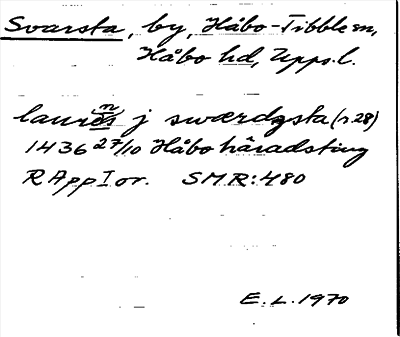 Svarsta, by, Håbo-Tibble sn,
Håbo hd, Upps.l.
laurens j swærdzsta (r.28)
1436 27/10 Håbo häradsting
RAppI or. SMR:480
E.L.1970